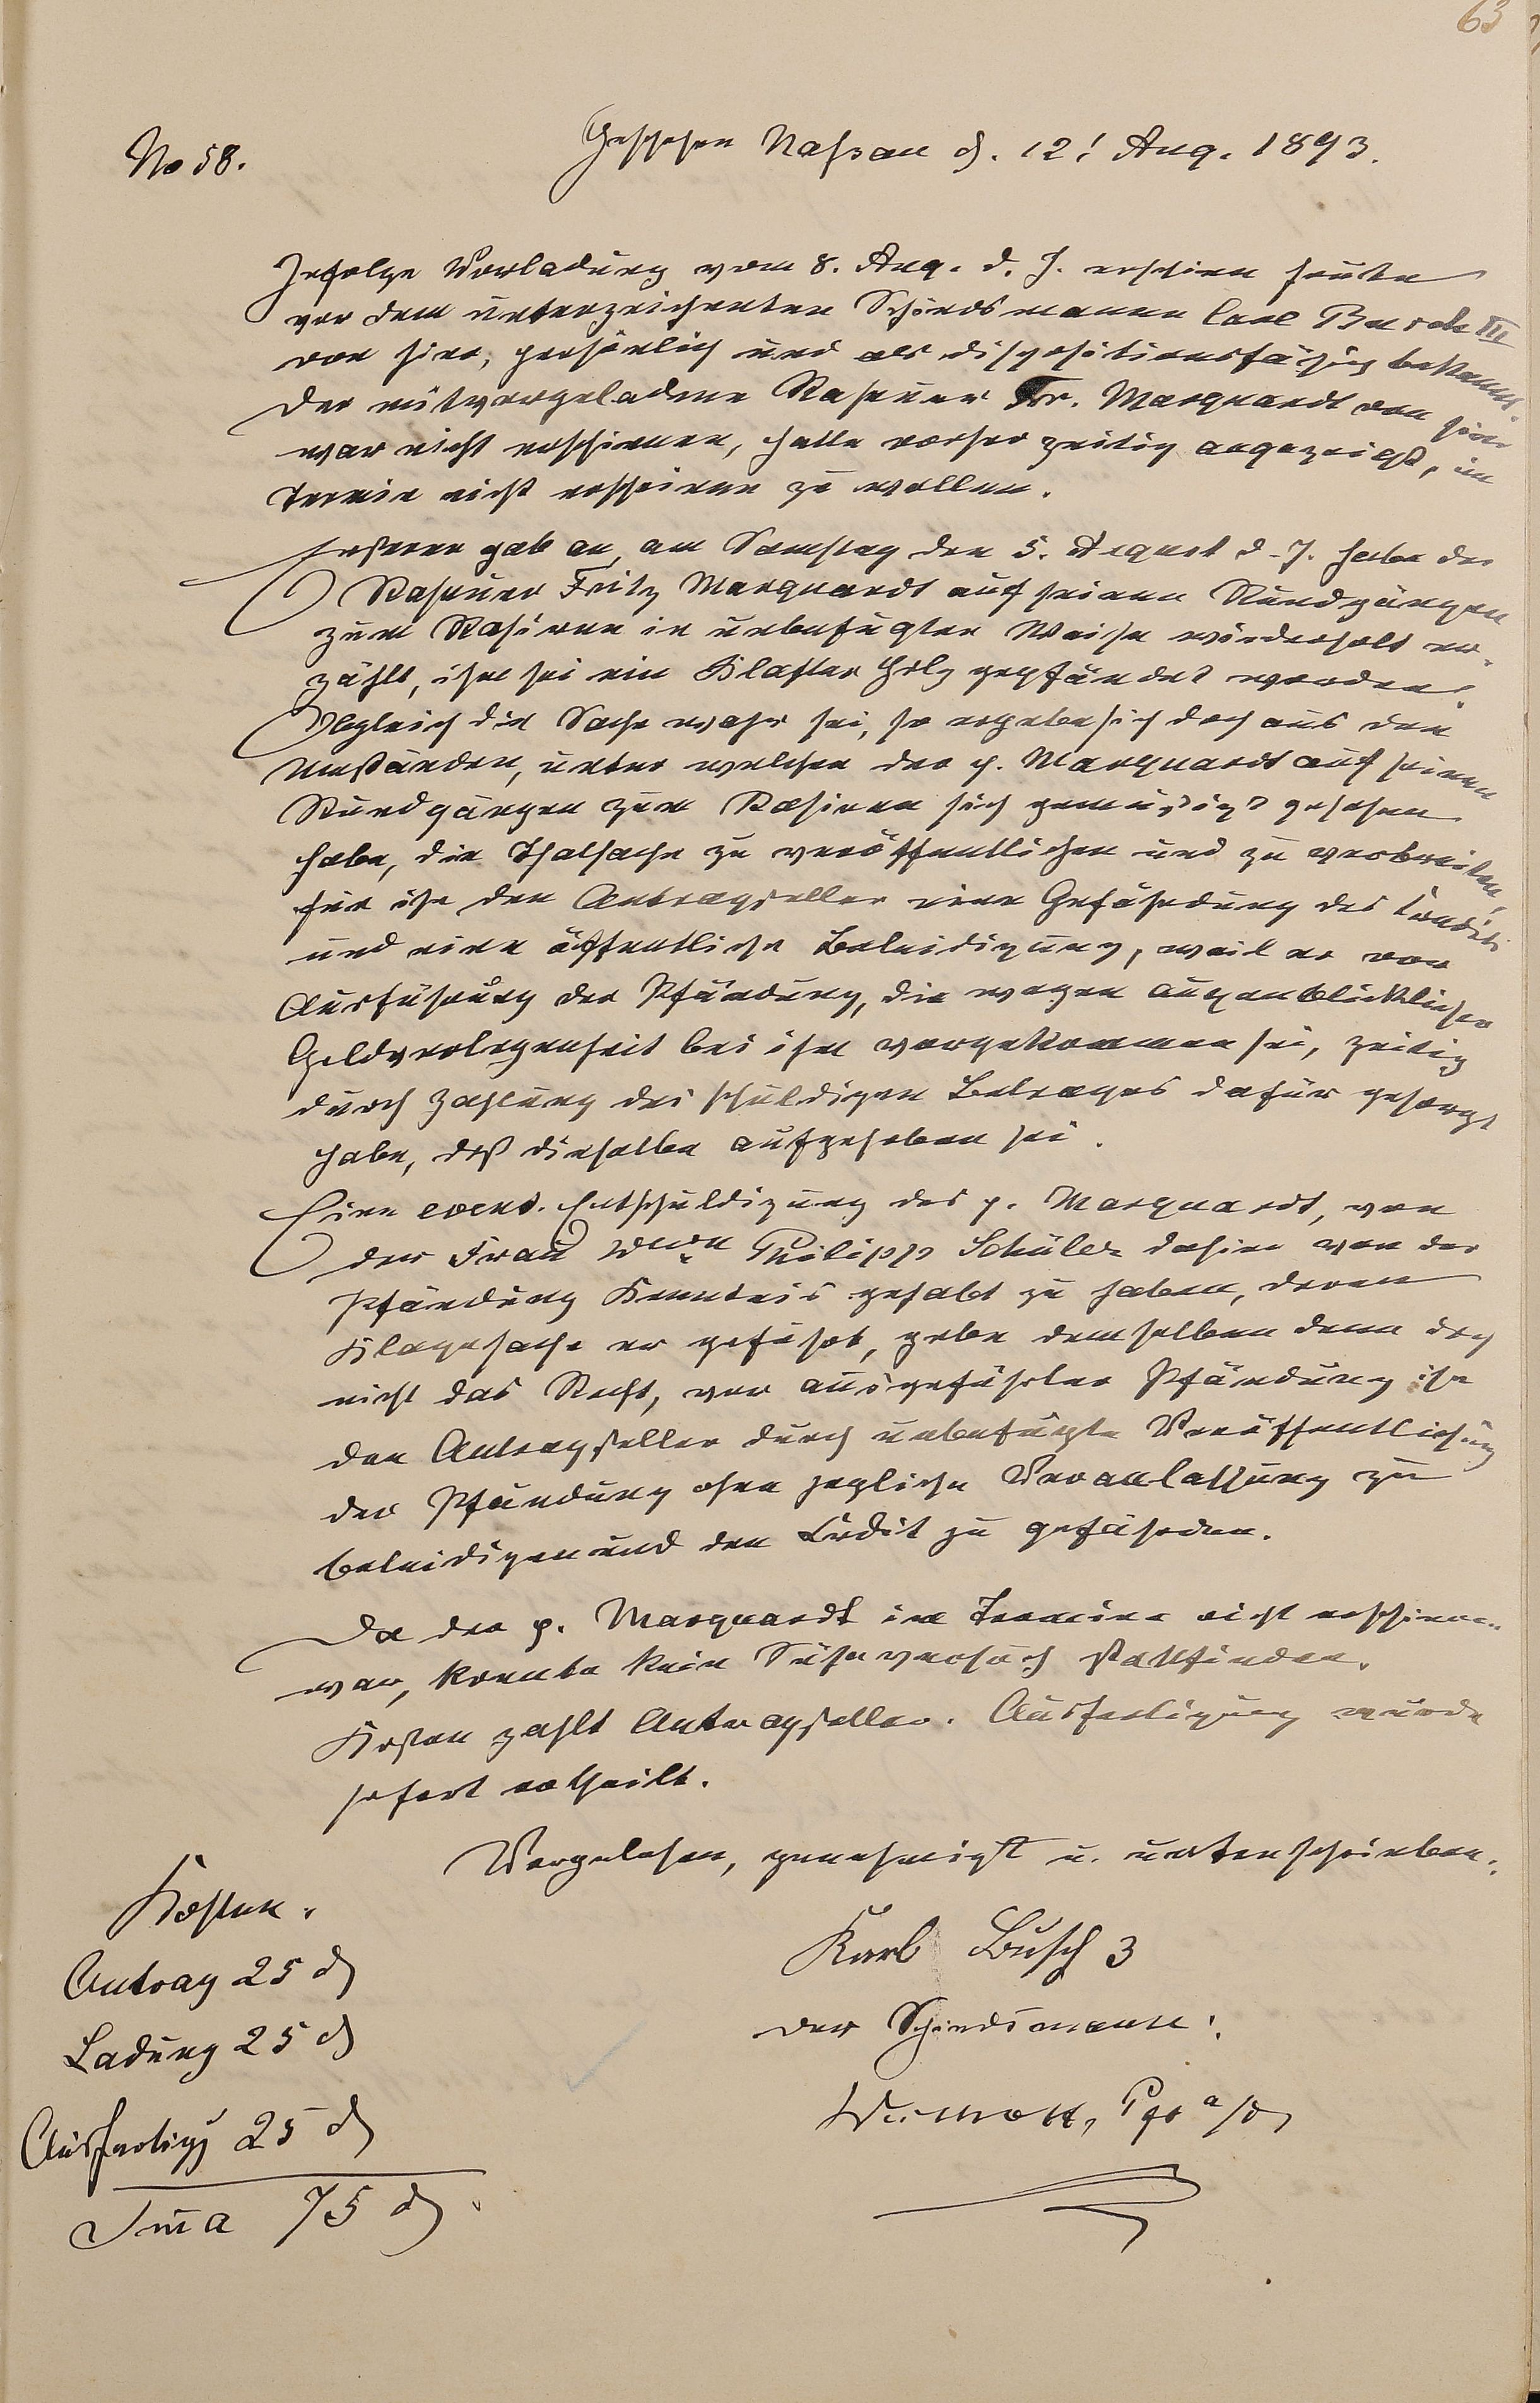 63
No 58.
Geschehen Nassau d. 12. Aug. 1893.
Infolge Vorladung vom 8. Aug. d. J. erschien heute
vor dem unterzeichneten Schiedsmanne Carl Busch III
von hier, persönlich und als dispositionsfähig bekannt.
Der mitvorgeladene Raseuer Fr. Marquardt von hier
war nicht erschienen, hatte vorher zeitig angezeigt, im
Termin nicht erscheinen zu wollen.
Ersterer gab an, am Samstag den 5. August d. J. habe der
Raseuer Fritz Marquardt auf seinen Rundgängen
zum Rasiren in unbefugter Weise wiederholt er-
zählt, ihm sei ein Klafter Holz gepfändet worden.
Obgleich die Sache wahr sei, so ergebe sich doch aus den
Umständen, unter welchen der p. Marquardt auf seinen
Rundgängen zum Rasiren sich gemüßigt gesehen
habe, die Thatsache zu veröffentlichen und zu verbreiten,
für ihn den Antragsteller eine Gefährdung des Credits
und eine öffentliche Beleidigung, weil er vor
Ausführung der Pfändung, die wegen augenblicklicher
Geldverlegenheit bei ihm vorgekommen sei, zeitig
durch Zahlung des schuldigen Betrages dafür gesorgt
habe, daß dieselbe aufgehoben sei.
Eine event. Entschuldigung des p. Marquardt, von
der Frau Wwe Philipp Schüler dahier von der
Pfändung Kenntnis gehabt zu haben, deren
Klagesache er geführt, gebe demselben denn doch
nicht das Recht, vor ausgeführter Pfändung ihn
den Antragsteller durch unbefugte Veröffentlichung
der Pfändung ohne jegliche Veranlassung zu
beleidigen und den Credit zu gefährden.
Da der p. Marquardt im Termine nicht erschienen
war, konnte kein Sühneversuch stattfinden.
Kosten zahlt Antragsteller. Ausfertigung wurde
sofort ertheilt.
Vorgelesen, genehmigt u. unterschrieben.
Karl Busch 3
Der Schiedsmann:
Kosten.
Antrag 25 ₰
Ladung 25 ₰
Ausfertigg 25 ₰
Sm̄a 75 ₰